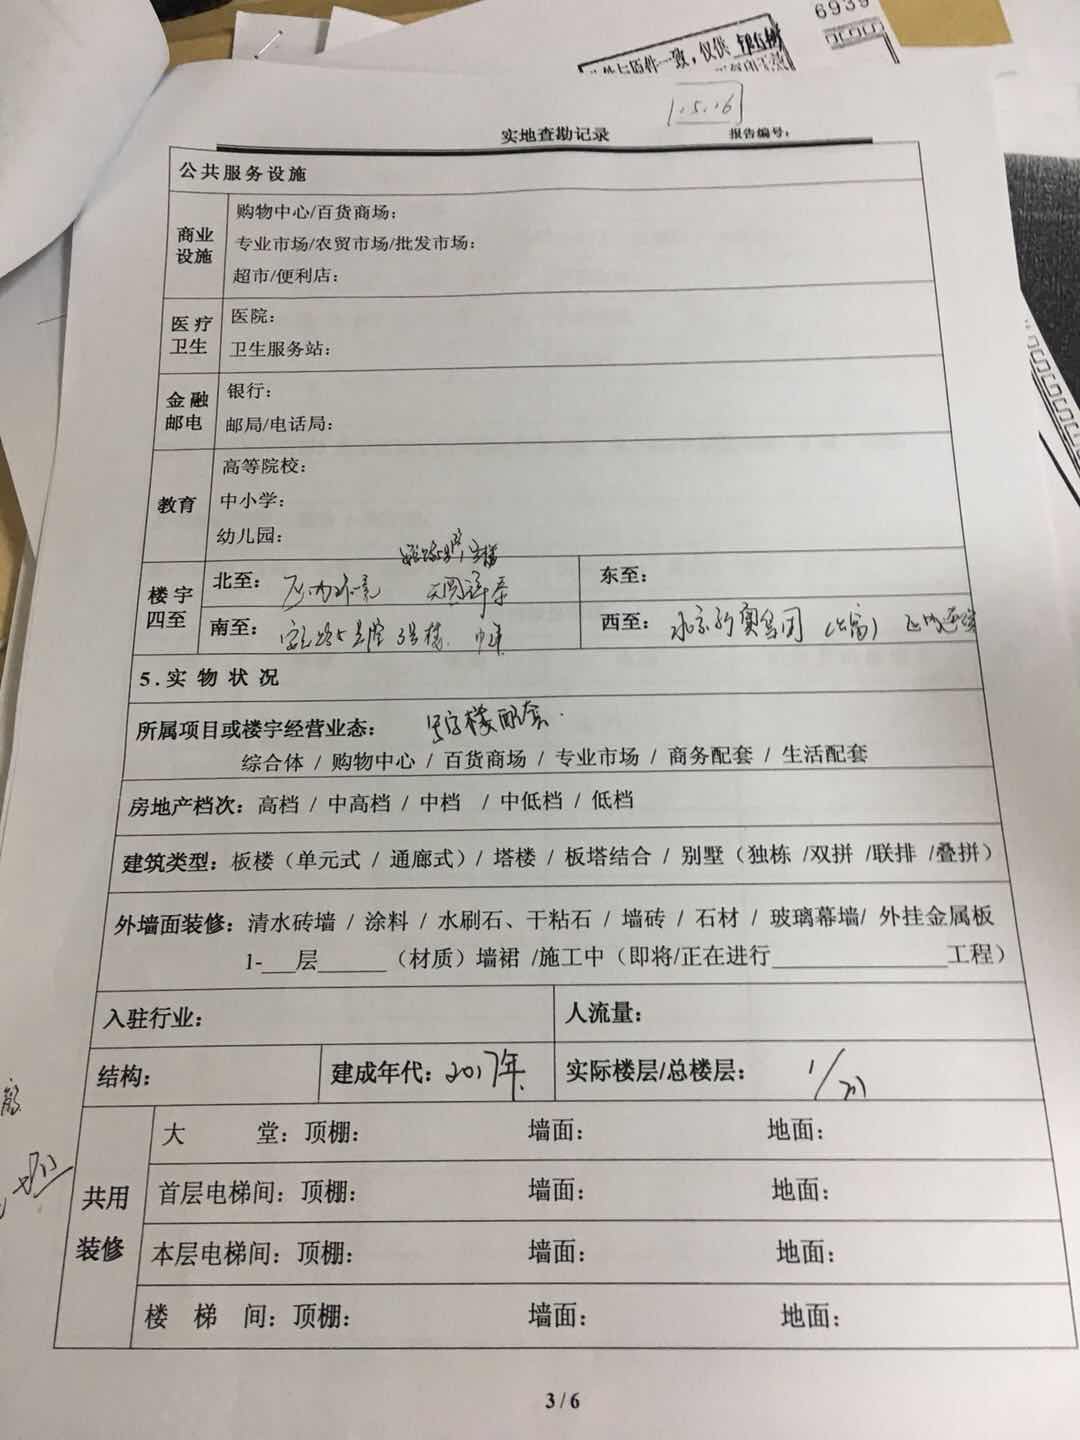 6939
1.5.16
实地查勘记录
报告编号：
公共服务设施
商业
设施
购物中心/百货商场：
专业市场/农贸市场/批发市场：
超市/便利店：
医疗
卫生
医院：
卫生服务站：
金融
邮电
银行：
邮局/电话局：
教育
高等院校：
中小学：
幼儿园：
楼宇
四至
北至：
东至：
南至：
西至：
5.实物状况
所属项目或楼宇经营业态： 写字楼配套.
综合体 / 购物中心 / 百货商场 / 专业市场 / 商务配套 / 生活配套
房地产档次：高档 / 中高档 / 中档 / 中低档 / 低档
建筑类型：板楼（单元式 / 通廊式）/ 塔楼 / 板塔结合 / 别墅（独栋 /双拼 /联排 /叠拼）
外墙面装修：清水砖墙 / 涂料 / 水刷石、干粘石 / 墙砖 / 石材 / 玻璃幕墙/ 外挂金属板
1-___层______（材质）墙裙 /施工中（即将/正在进行________________工程）
入驻行业：
人流量：
结构：
建成年代：2017年
实际楼层/总楼层：
共用
装修
大 堂：顶棚： 墙面： 地面：
首层电梯间：顶棚： 墙面： 地面：
本层电梯间：顶棚： 墙面： 地面：
楼 梯 间：顶棚： 墙面： 地面：
3 / 6